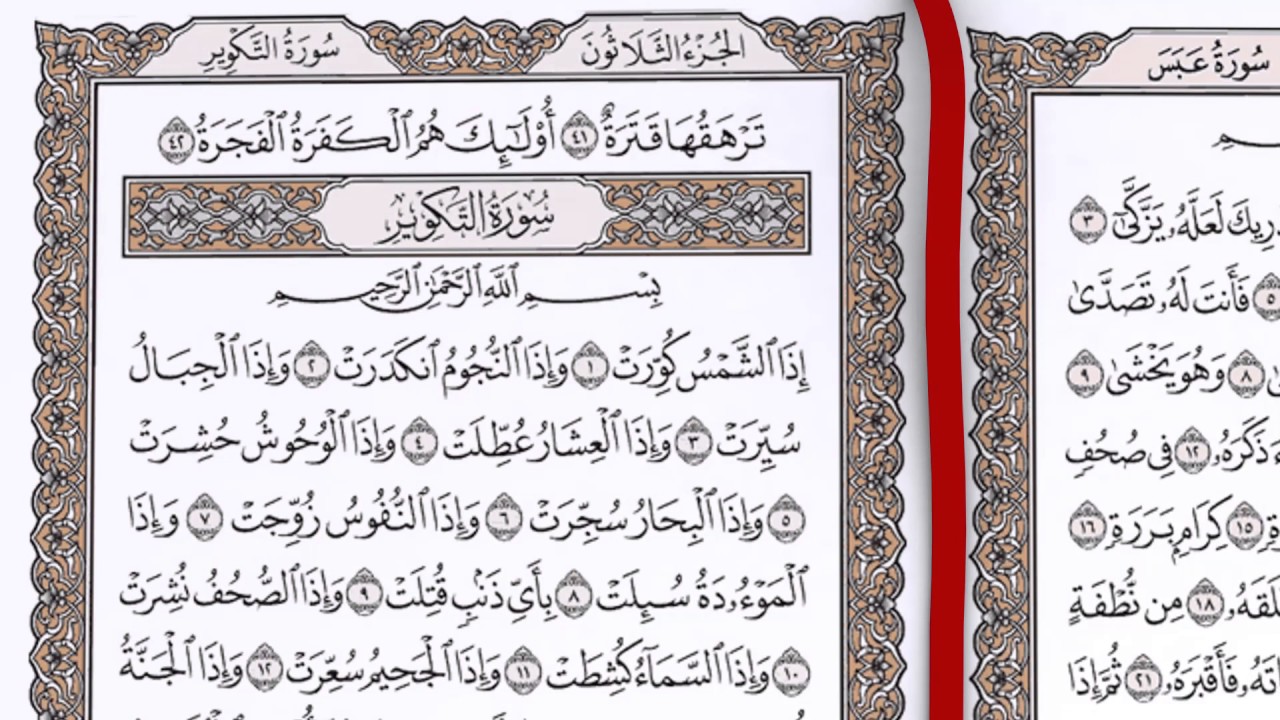 سُورَةُ عَبَسَ
ـمِ
دْرِيكَ لَعَلَّهُۥ يَزَّكَّىٰٓ ٣
٥ فَأَنتَ لَهُۥ تَصَدَّىٰ
٨ وَهُوَ يَخْشَىٰ ٩
ذَكَرَهُۥ ١٢ فِى صُحُفٍ
١٥ كِرَامٍۭ بَرَرَةٍ ١٦
١٨ مِن نُّطْفَةٍ
فَأَقْبَرَهُۥ ٢١ ثُمَّ إِذَا
الجُزْءُ الثَّلَاثُونَ
سُورَةُ التَّكْوِيرِ
تَرْهَقُهَا قَتَرَةٌ ٤١ أُو۟لَـٰٓئِكَ هُمُ ٱلْكَفَرَةُ ٱلْفَجَرَةُ ٤٢
سُورَةُ التَّكْوِيرِ
بِسْمِ ٱللَّهِ ٱلرَّحْمَـٰنِ ٱلرَّحِيمِ
إِذَا ٱلشَّمْسُ كُوِّرَتْ ١ وَإِذَا ٱلنُّجُومُ ٱنكَدَرَتْ ٢ وَإِذَا ٱلْجِبَالُ
سُيِّرَتْ ٣ وَإِذَا ٱلْعِشَارُ عُطِّلَتْ ٤ وَإِذَا ٱلْوُحُوشُ حُشِرَتْ
٥ وَإِذَا ٱلْبِحَارُ سُجِّرَتْ ٦ وَإِذَا ٱلنُّفُوسُ زُوِّجَتْ ٧ وَإِذَا
ٱلْمَوْءُۥدَةُ سُئِلَتْ ٨ بِأَىِّ ذَنۢبٍ قُتِلَتْ ٩ وَإِذَا ٱلصُّحُفُ نُشِرَتْ
١٠ وَإِذَا ٱلسَّمَآءُ كُشِطَتْ ١١ وَإِذَا ٱلْجَحِيمُ سُعِّرَتْ ١٢ وَإِذَا ٱلْجَنَّةُ